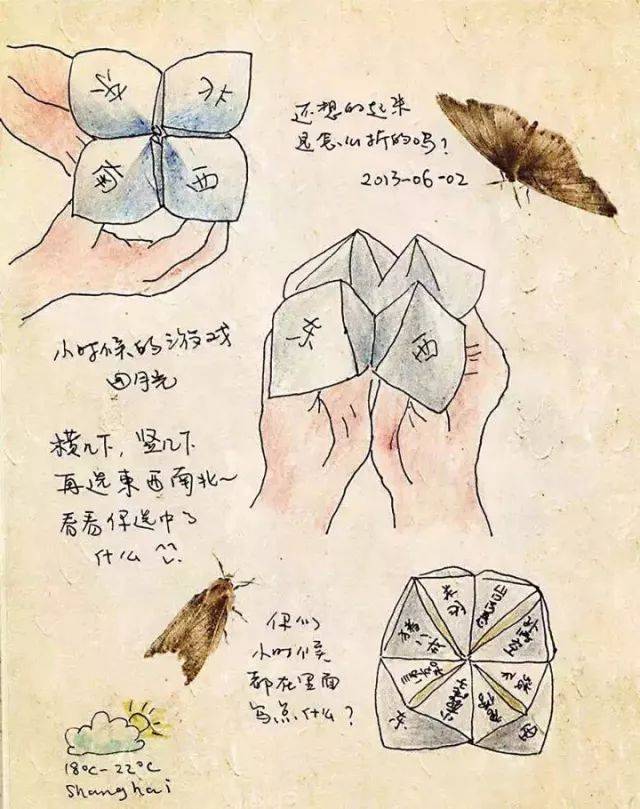 东
北
南
西
还想的起来
是怎么折的吗？
2013-06-02
东
西
小时候的游戏
横几下，竖几下
再选東西南北～
看看你选中了
什么
你们
小时候
都在里面
写点什么？
东
西
18°C-22°C
Shanghai